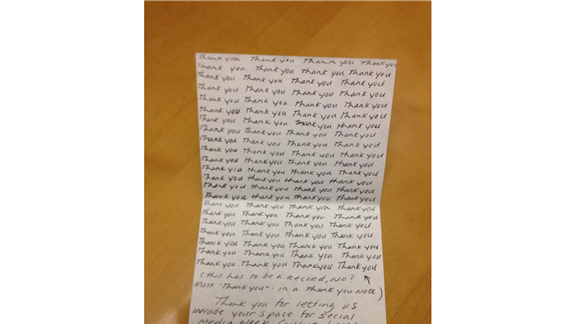 Thank you Thank you Thank you Thank you
Thank you Thank you Thank you Thank you
Thank you Thank you Thank you Thank you
Thank you Thank you Thank you Thank you
Thank you Thank you Thank you Thank you
Thank you Thank you Thank you Thank you
Thank you Thank you Thank you Thank you
Thank you Thank you Thank you Thank you
Thank you Thank you Thank you Thank you
Thank you Thank you Thank you Thank you
Thank you Thank you Thank you Thank you
Thank you Thank you Thank you Thank you
Thank you thank you thank you thank you
Thank you thank you thank you thank you
Thank you thank you thank you thank you
Thank you Thank you Thank you Thank you
Thank you Thank you Thank you Thank you
Thank you Thank you Thank you Thank you
Thank you Thank you Thank you Thank you
Thank you Thank you Thank you Thank you
Thank you Thank you Thank you Thank you
Thank you Thank you Thank you Thank you
(this has to be a record, no?
most "Thank you"s in a Thank you note)
Thank you for letting us
invade your space for social
media